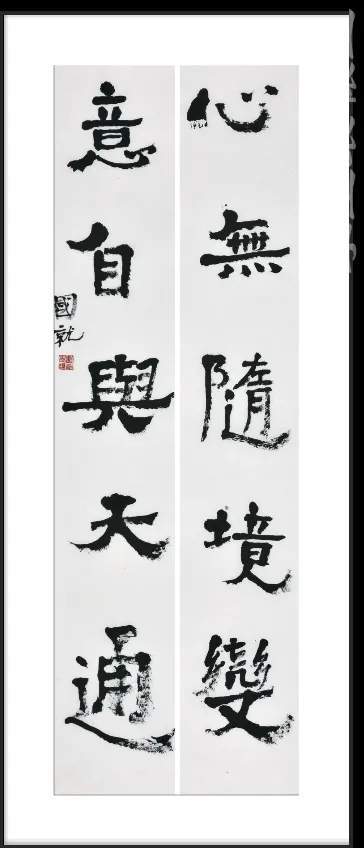 心無隨境變
意自與天通
國就